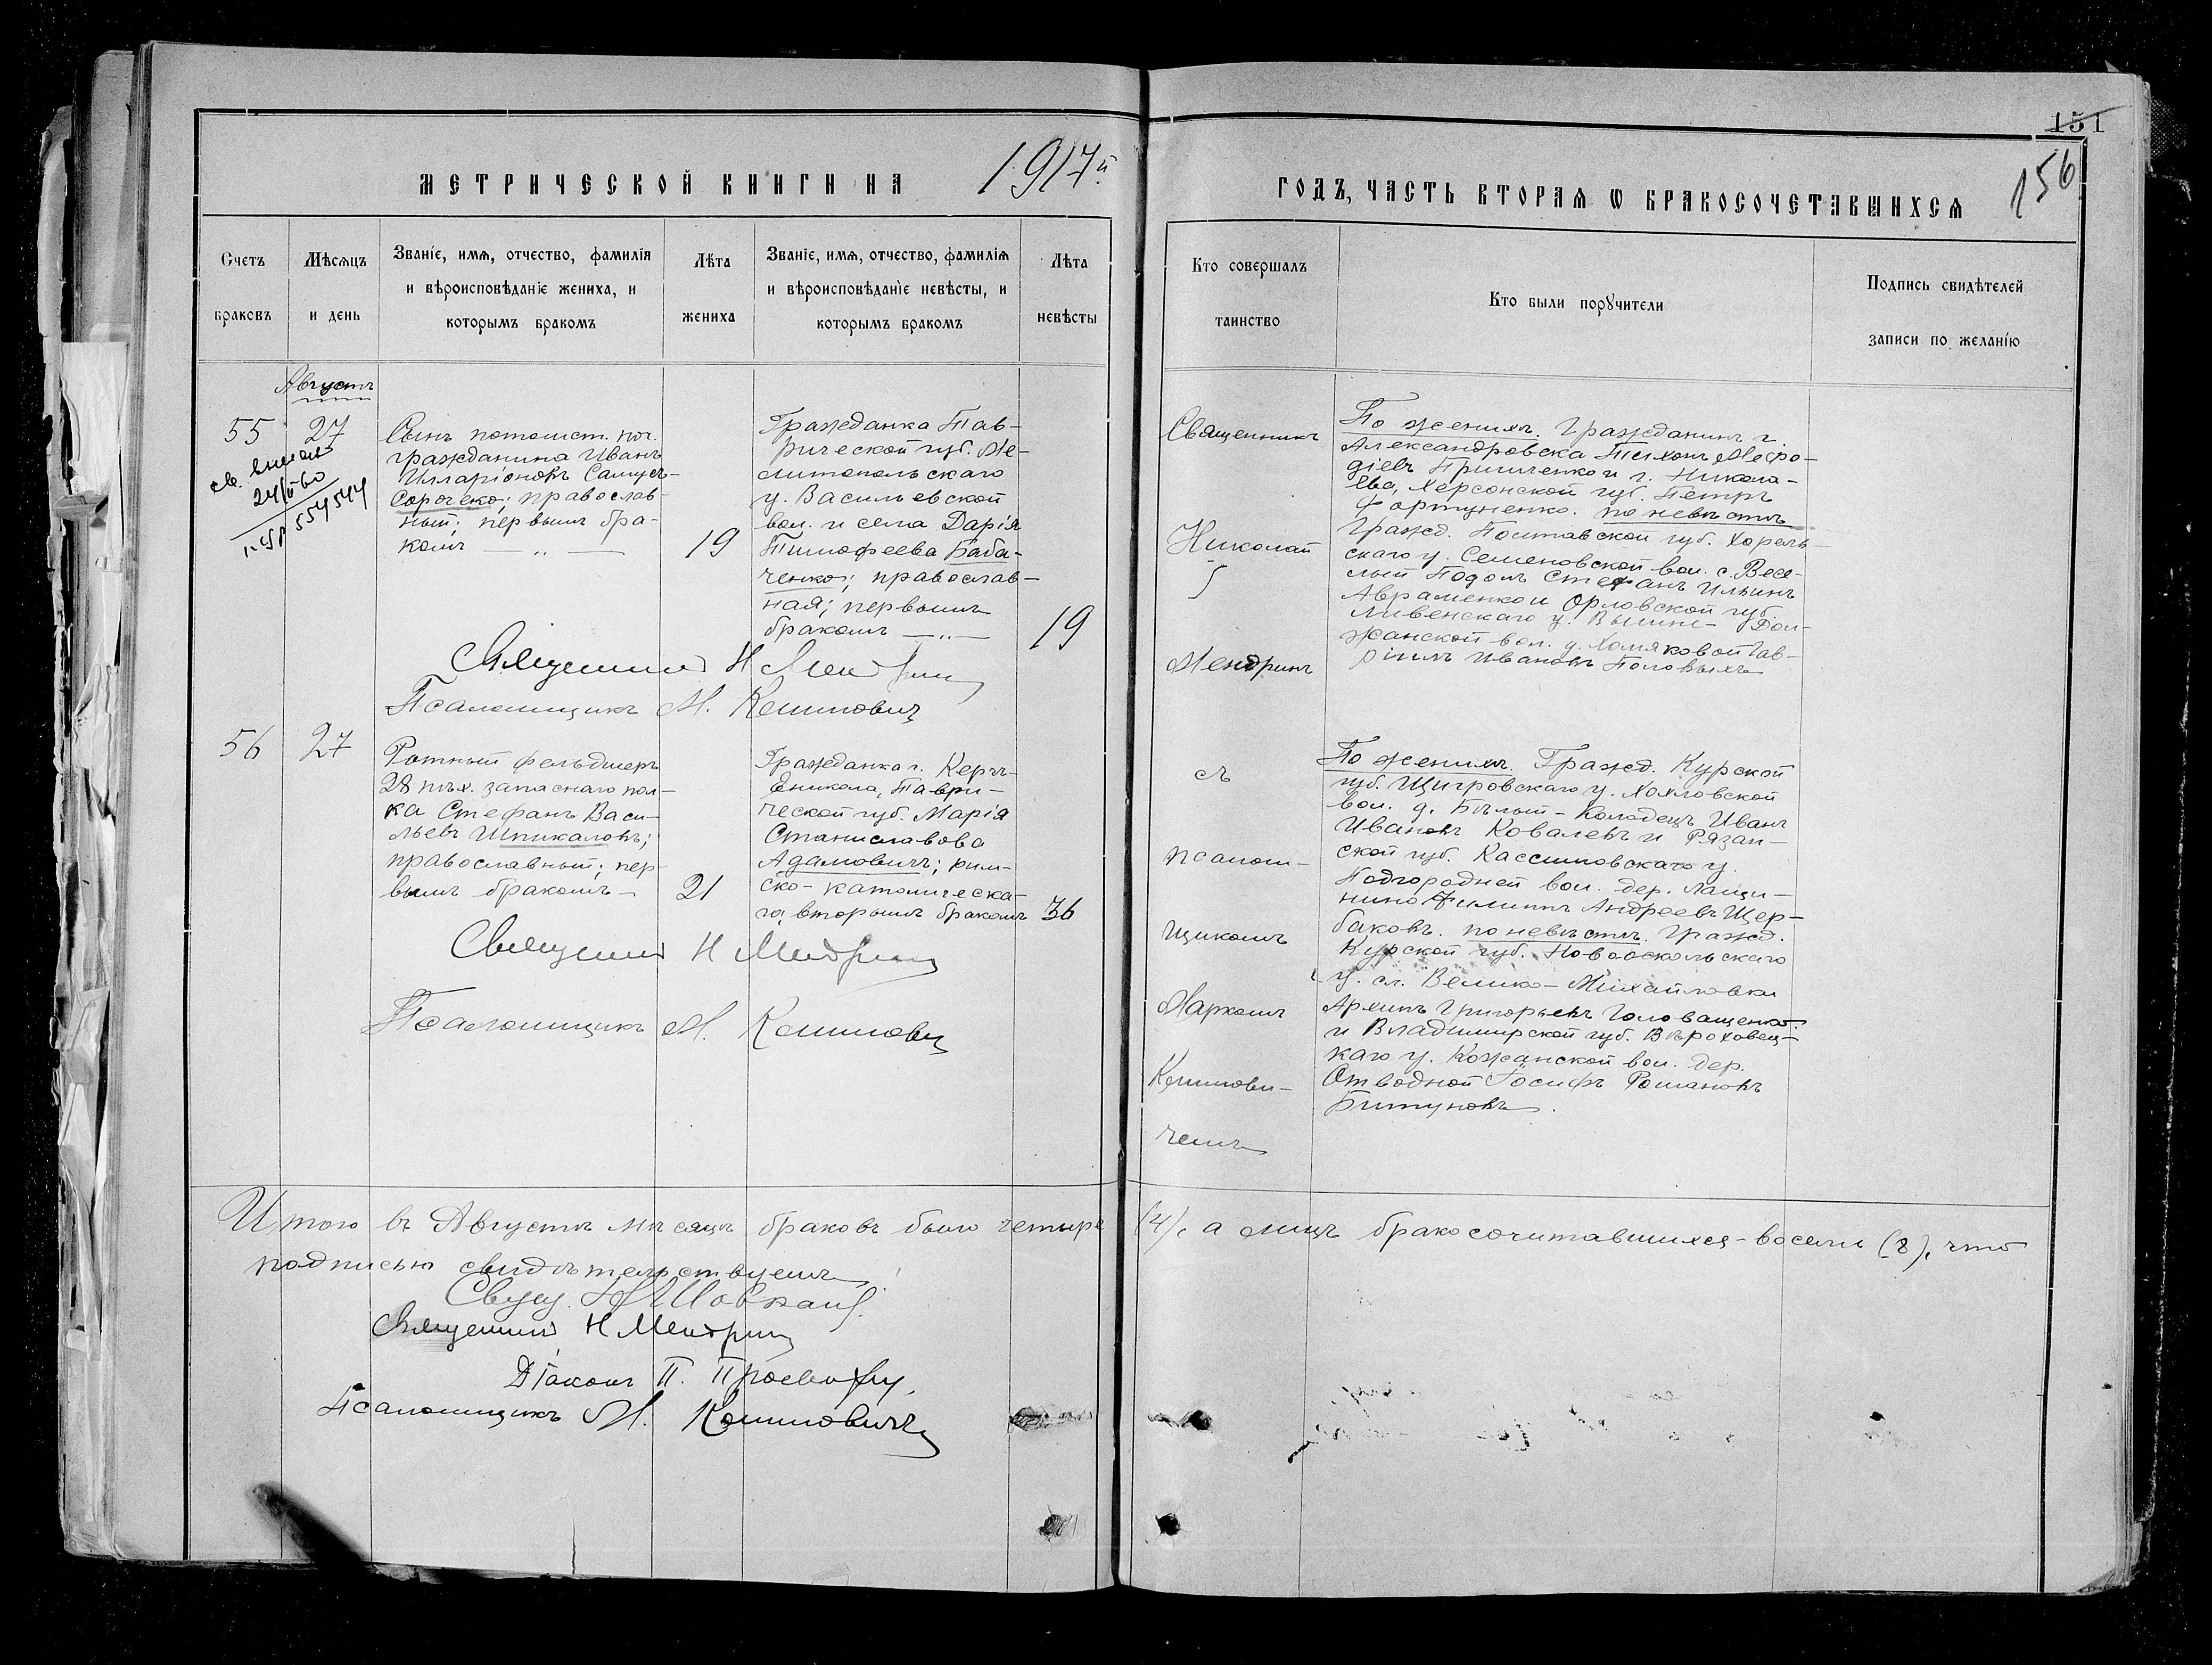 151
156
МЕТРИЧЕСКОЙ КНИГИ НА 1917й
ГОДЪ, ЧАСТЬ ВТОРАЯ Ѡ БРАКОСОЧЕТАВШИХСЯ
Счетъ
браковъ
Мѣсяцъ
и день
Званіе, имя, отчество, фамилія
и вѣроисповѣданіе жениха, и
которымъ бракомъ
Лѣта
жениха
Званіе, имя, отчество, фамилія
и вѣроисповѣданіе невѣсты, и
которымъ бракомъ
Лѣта
невѣсты
Кто совершалъ
таинство
Кто были порꙋчители
Подпись свидѣтелей
записи по желанію
Августъ
55
27
24/II 60
554544
Сынъ потомст. поч.
гражданина Иванъ
Илларіоновъ Самусь-
Сорочеко; православ-
ный; первымъ бра-
комъ — „ —
19
Гражданка Тав-
рической губ. Ме-
литопольскаго
у. Васильевской
вол. и села Дарія
Тимофеева Баба-
ченко; православ-
ная; первымъ
бракомъ — „ —
19
Священникъ Н Мендринъ
Псаломщикъ М. Климовичъ
Священникъ
Николай
Мендринъ
съ
псалом-
щикомъ
Маркомъ
Климови-
чемъ
По женихѣ. Гражданинъ г.
Александровска Тихонъ Мефо-
діевъ Гришченко и г. Никола-
ева, Херсонской губ. Петръ
Фортуненко. по невѣстѣ
Гражд. Полтавской губ. Хороль-
скаго у. Семеновской вол. с. Весе-
лый Подолъ Стефанъ Ильинъ
Авраменко и Орловской губ.
Ливенскаго у. Вышне-Дол-
жанской вол. д. Хомяковой Гав-
ріилъ Ивановъ Половыхъ
56
27
Ротный фельдшеръ
28 пѣх. запаснаго пол-
ка Стефанъ Васи-
льевъ Шпикаловъ;
православный; пер-
вымъ бракомъ —
21
Гражданка г. Керчь-
Еникола, Таври-
ческой губ. Марія
Станиславова
Адамовичъ; рим-
ско-католическа-
го, вторымъ бракомъ
36
Священникъ Н Мендринъ
Псаломщикъ М. Климовичъ
По женихѣ. Гражд. Курской
губ. Щигровскаго у. Хохловской
вол. д. Бѣлый-Колодецъ Иванъ
Ивановъ Ковалевъ и Рязан-
ской губ. Кассимовскаго у.
Подгородней вол. дер. Лащи-
нино Филиппъ Андреевъ Щер-
баковъ. по невѣстѣ. Гражд.
Курской губ. Новооскольскаго
у. сл. Велико-Михайловки
Архипъ Григорьевъ Головащенко
и Владимирской губ. Вѣроховец-
каго у. Кожанской вол. дер.
Отводной Іосифъ Романовъ
Битуновъ.
Итого въ Августѣ мѣсяцѣ браковъ было четыре (4), а лицъ бракосочитавшихся-восемь (8), что
подписью свидѣтельствуемъ
Священникъ Н Мендринъ
Діаконъ П.
Псаломщикъ М. Климовичъ